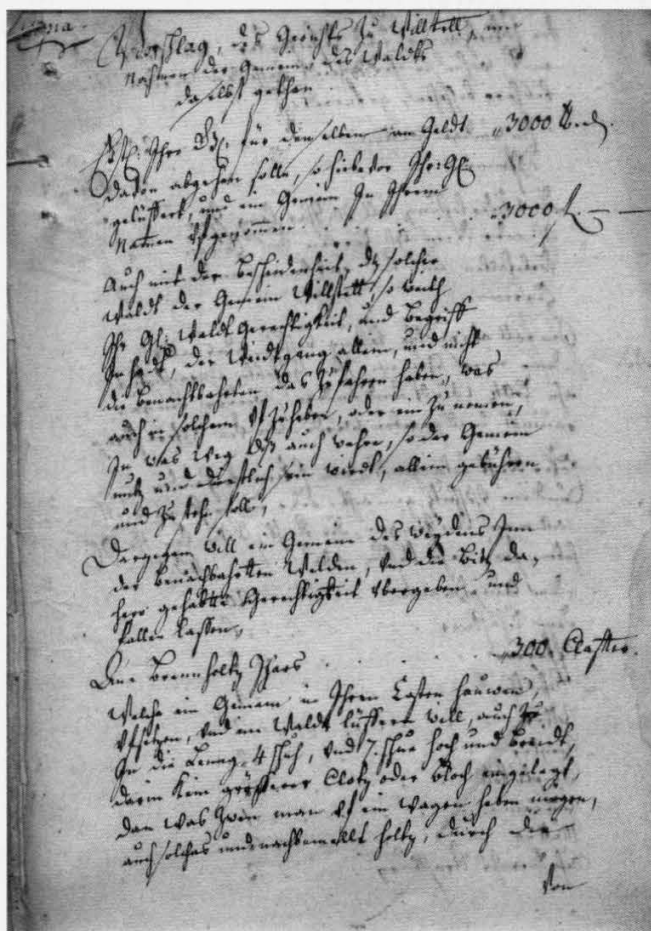 Vorschlag, des Gerichts Zu Willstett,
Nahmen der Gemein des Waldts
daselbst gethan
für denselben an Geldt 3000
Davon abgehen solle, so hiebevor Ihr: Gl:
gelüffert, und ein Gemein In Ihrem
Namen vfgenommen 3000 fl.
Auch mit der bescheidenheit, dz solcher
Waldt der Gemein Willstett, so weith
Ihr Gl: Waldt Gerechtigkeit, und Begriff
der Weidtgang allein, und nicht
die benachbahrten das Zufahren haben, was
auch in solchem vfzuheben, oder ein Zu nemen,
In was Weg dz auch wehre, so der Gemein
nutz und dienstlich sein wirdt, allein gebühren
und Zustehn soll,
Dargegen will ein Gemein des weydens Inn
der benachbahrten Welden, vnd die bitz da,
herr gehabte Gerechtigkeit vbergeben und
fallen lassen,
Ane Brennholtz Jhars 300. Claffter.
Welche ein Gemein in Ihrem Costen hauwen,
vfsetzen, vnd im Waldt lüffern will, auch
In die Leng 4 schuh, vnd 7. schue hoch und breidt,
darin kein grösserer Clotz oder bloch eingelegt,
dan was Zwen man vf ein wagen heben mögen,
auch solches und nachbemelts holtz, durch die
von